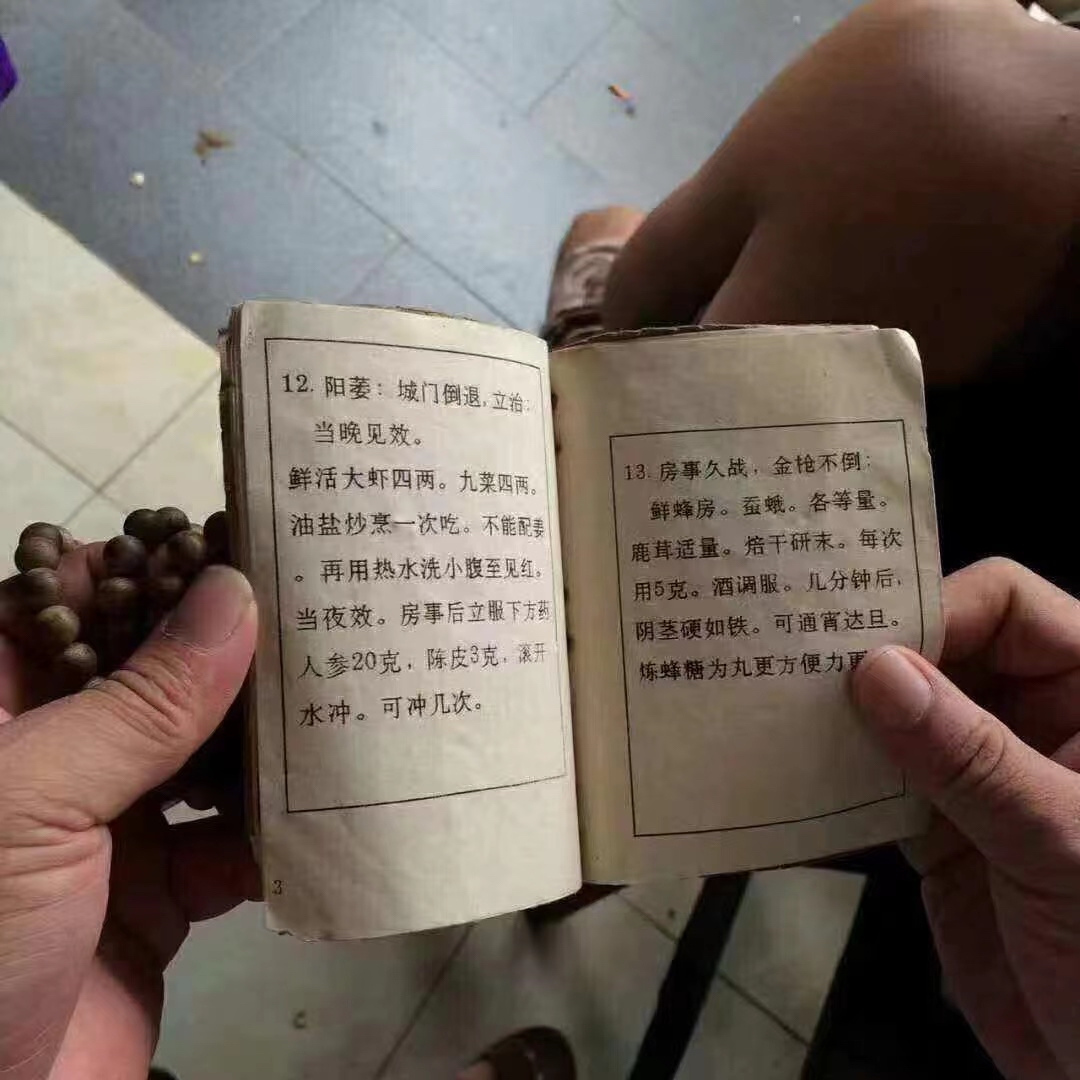 12. 阳萎：城门倒退，立治：
当晚见效。
鲜活大虾四两。九菜四两。
油盐炒烹一次吃。不能配姜
。再用热水洗小腹至见红。
当夜效。房事后立服下方药
人参20克，陈皮3克，滚开
水冲。可冲几次。
3
13. 房事久战，金枪不倒：
鲜蜂房。蚕蛾。各等量。
鹿茸适量。焙干研末。每次
用5克。酒调服。几分钟后，
阴茎硬如铁。可通宵达旦。
炼蜂糖为丸更方便力更